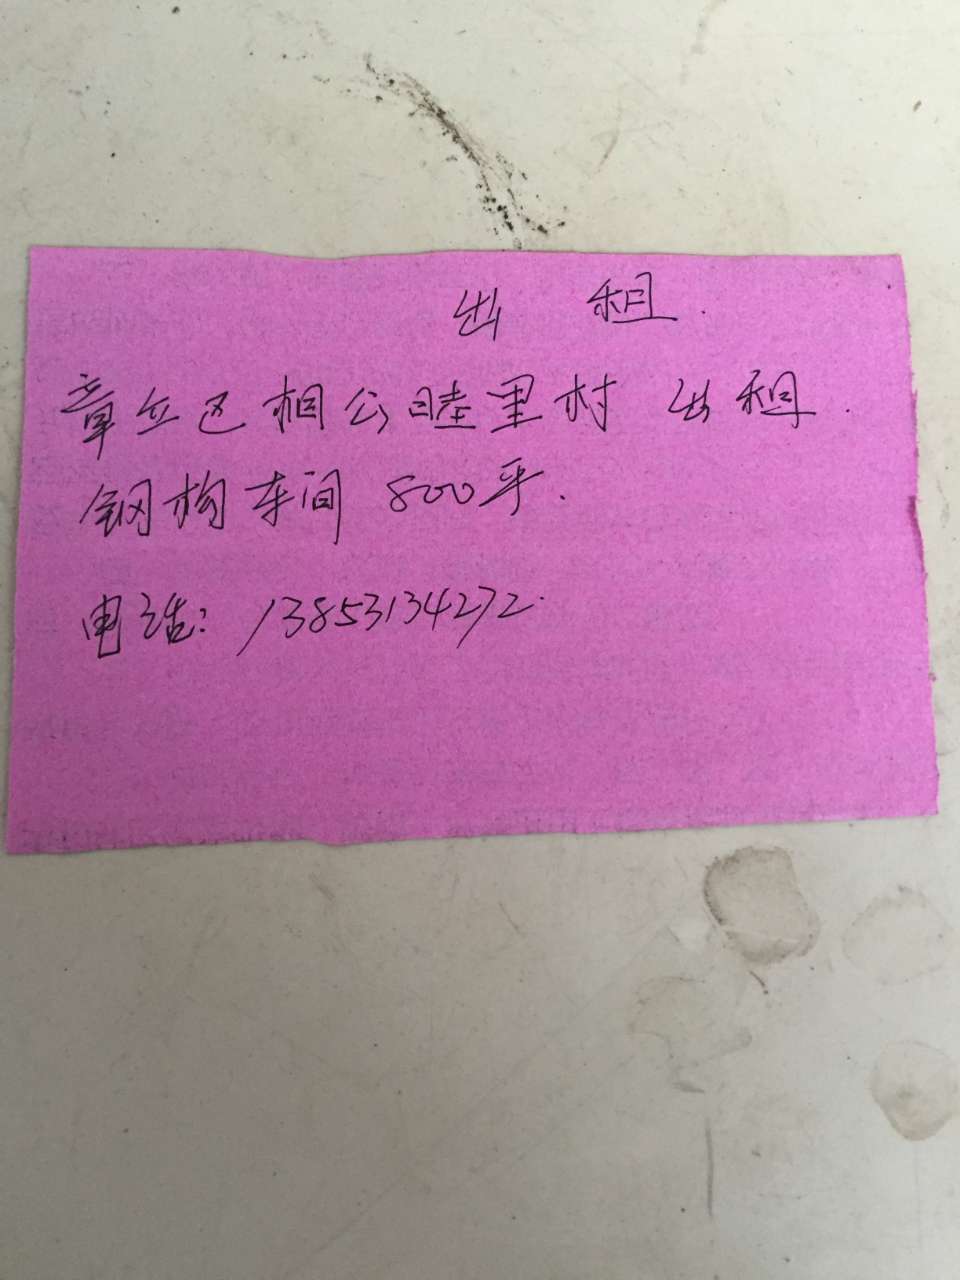 出 租.
章丘区相公睦里村 出租.
钢构车间 800平.
电话: 13853134272.